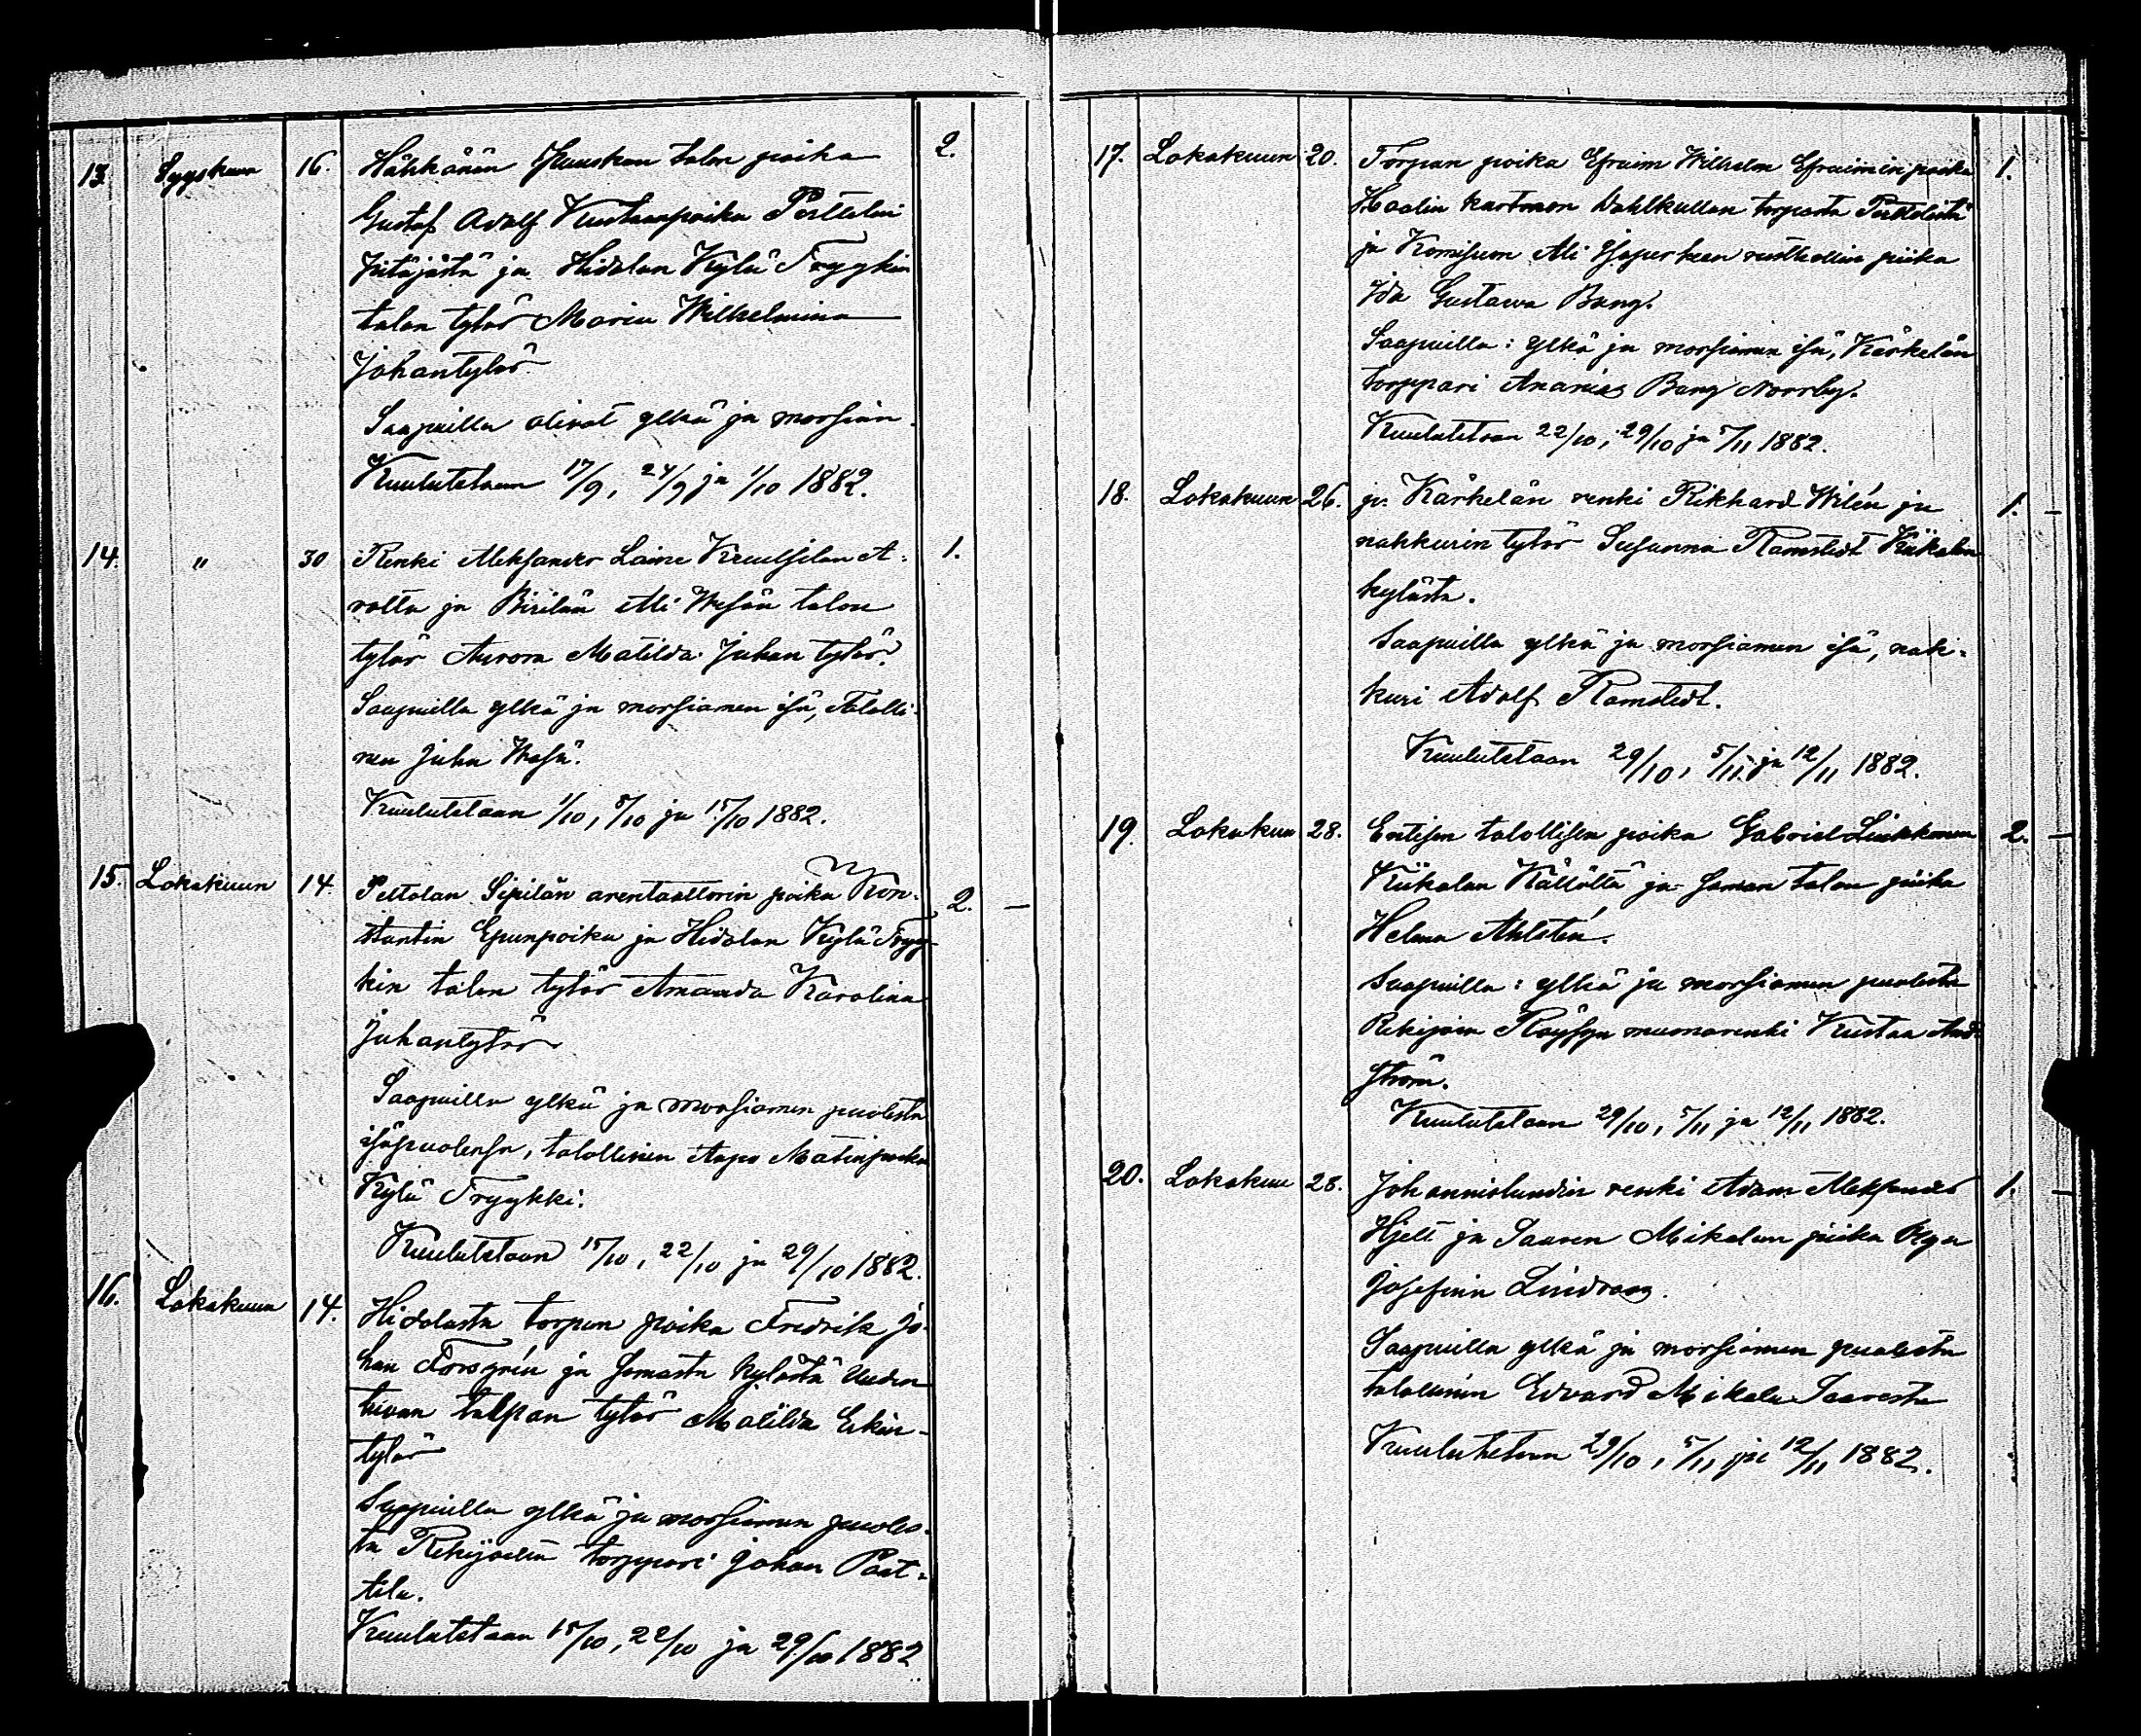 13. Syyskuun 16. Hähkänän Juuskan talon poika 2.
Gustaf Adolf Kustaanpoika Perttelin
pitäjästä ja Hidolan Kylä Fryykin
talon tytär Maria Wilhelmina
Johantytär.
Saapuilla olivat ylkä ja morsian.
Kuulutetaan 17/9, 24/9 ja 1/10 1882.
14. " 30 Renki Aleksander Laine A- 1.
rolta ja Pirilän Ali Wesän talon
tytär Aurora Matilda Juhan tytär.
Saapuilla ylkä ja morsiamen isä, Talolli-
nen Juha Wesä.
Kuulutetaan 1/10, 8/10 ja 15/10 1882.
15. Lokakuun 14. Peltolan Sipilän arentaattorin poika Kon- 2. —
stantin Epunpoika ja Hidolan Kylä Fryy-
kin talon tytär Amanda Karolina
Juhantytär
Saapuilla ylkä ja morsiamen puolesta
isäpuolensa, talollinen Aapo Matinpoika
Kylä Fryykki.
Kuulutetaan 15/10, 22/10 ja 29/10 1882.
16. Lokakuun 14. Hidolasta torpan poika Fredrik Jo-
han Forsgrén ja samasta kylästä Uuden
tytär Matilda Erkin-
tytär
Saapuilla ylkä ja morsiamen puoles-
ta Rekijoelta torppari Johan Paat-
tela.
Kuulutetaan 15/10, 22/10 ja 29/10 1882
17. Lokakuun 20. Torpan poika Efraim Wilhelm Efraimin poika 1.
Haalin kartanon Dahlkullan torpasta Perttelistä
ja Komisuon Ali rusthollin piika
Ida Gustawa Bang.
Saapuilla: ylkä ja morsiamen isä, Kärkelän
torppari Ananias Bang Norrby.
Kuulutetaan 22/10, 29/10 ja 5/11 1882.
18. Lokakuun 26. Kärkelän renki Rikhard Wilén ja 1. —
nahkurin tytär Susanna Ramstedt Kiikalan
kylästä.
Saapuilla ylkä ja morsiamen isä, nah-
kuri Adolf Ramstedt.
Kuulutetaan 29/10, 5/11 ja 12/11 1882.
19. Lokakuun 28. Entisen talollisen poika Gabriel 2. —
Kiikalan Källöltä ja saman talon piika
Helena Ahlstén.
Saapuilla: ylkä ja morsiamen puolesta
Rekijoen Räyskyn muonarenki Kustaa And-
ström.
Kuulutetaan 29/10, 5/11 ja 12/11 1882.
20. Lokakuu 28. Johannislundin renki Adam Aleksander 1. —
Hjelt ja Saaren Mikolan piika Olga
Josefina Lindroos.
Saapuilla ylkä ja morsiamen puolesta
talollinen Edvard Mikola Saaresta
Kuulutetaan 29/10, 5/11 ja 12/11 1882.